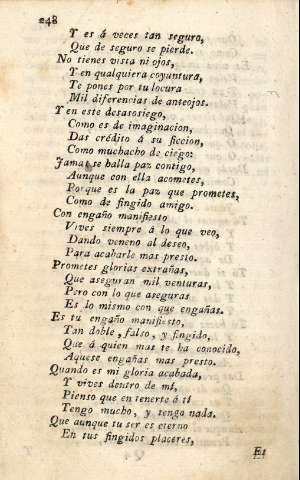 248
Y es á veces tan seguro,
Que de seguro se pierde.
No tienes vista ni ojos,
Y en qualquiera coyuntura,
Te pones por tu locura
Mil diferencias de anteojos.
Y en este desasosiego,
Como es de imaginacion,
Das crédito á su ficcion,
Como muchacho de ciego:
Jamas se halla paz contigo,
Aunque con ella acometes,
Porque es la paz que prometes,
Como de fingido amigo.
Con engaño manifiesto
Vives siempre á lo que veo,
Dando veneno al deseo,
Para acabarle mas presto.
Prometes glorias extrañas,
Que aseguran mil venturas,
Pero con lo que aseguras
Es lo mismo con que engañas.
Es tu engaño manifiesto,
Tan doble, falso, y fingido,
Que á quien mas te ha conocido,
Aquese engañas mas presto.
Quando es mi gloria acabada,
Y vives dentro de mí,
Pienso que en tenerte á tí
Tengo mucho, y tengo nada.
Que aunque tu ser es eterno
En tus fingidos placeres,
El